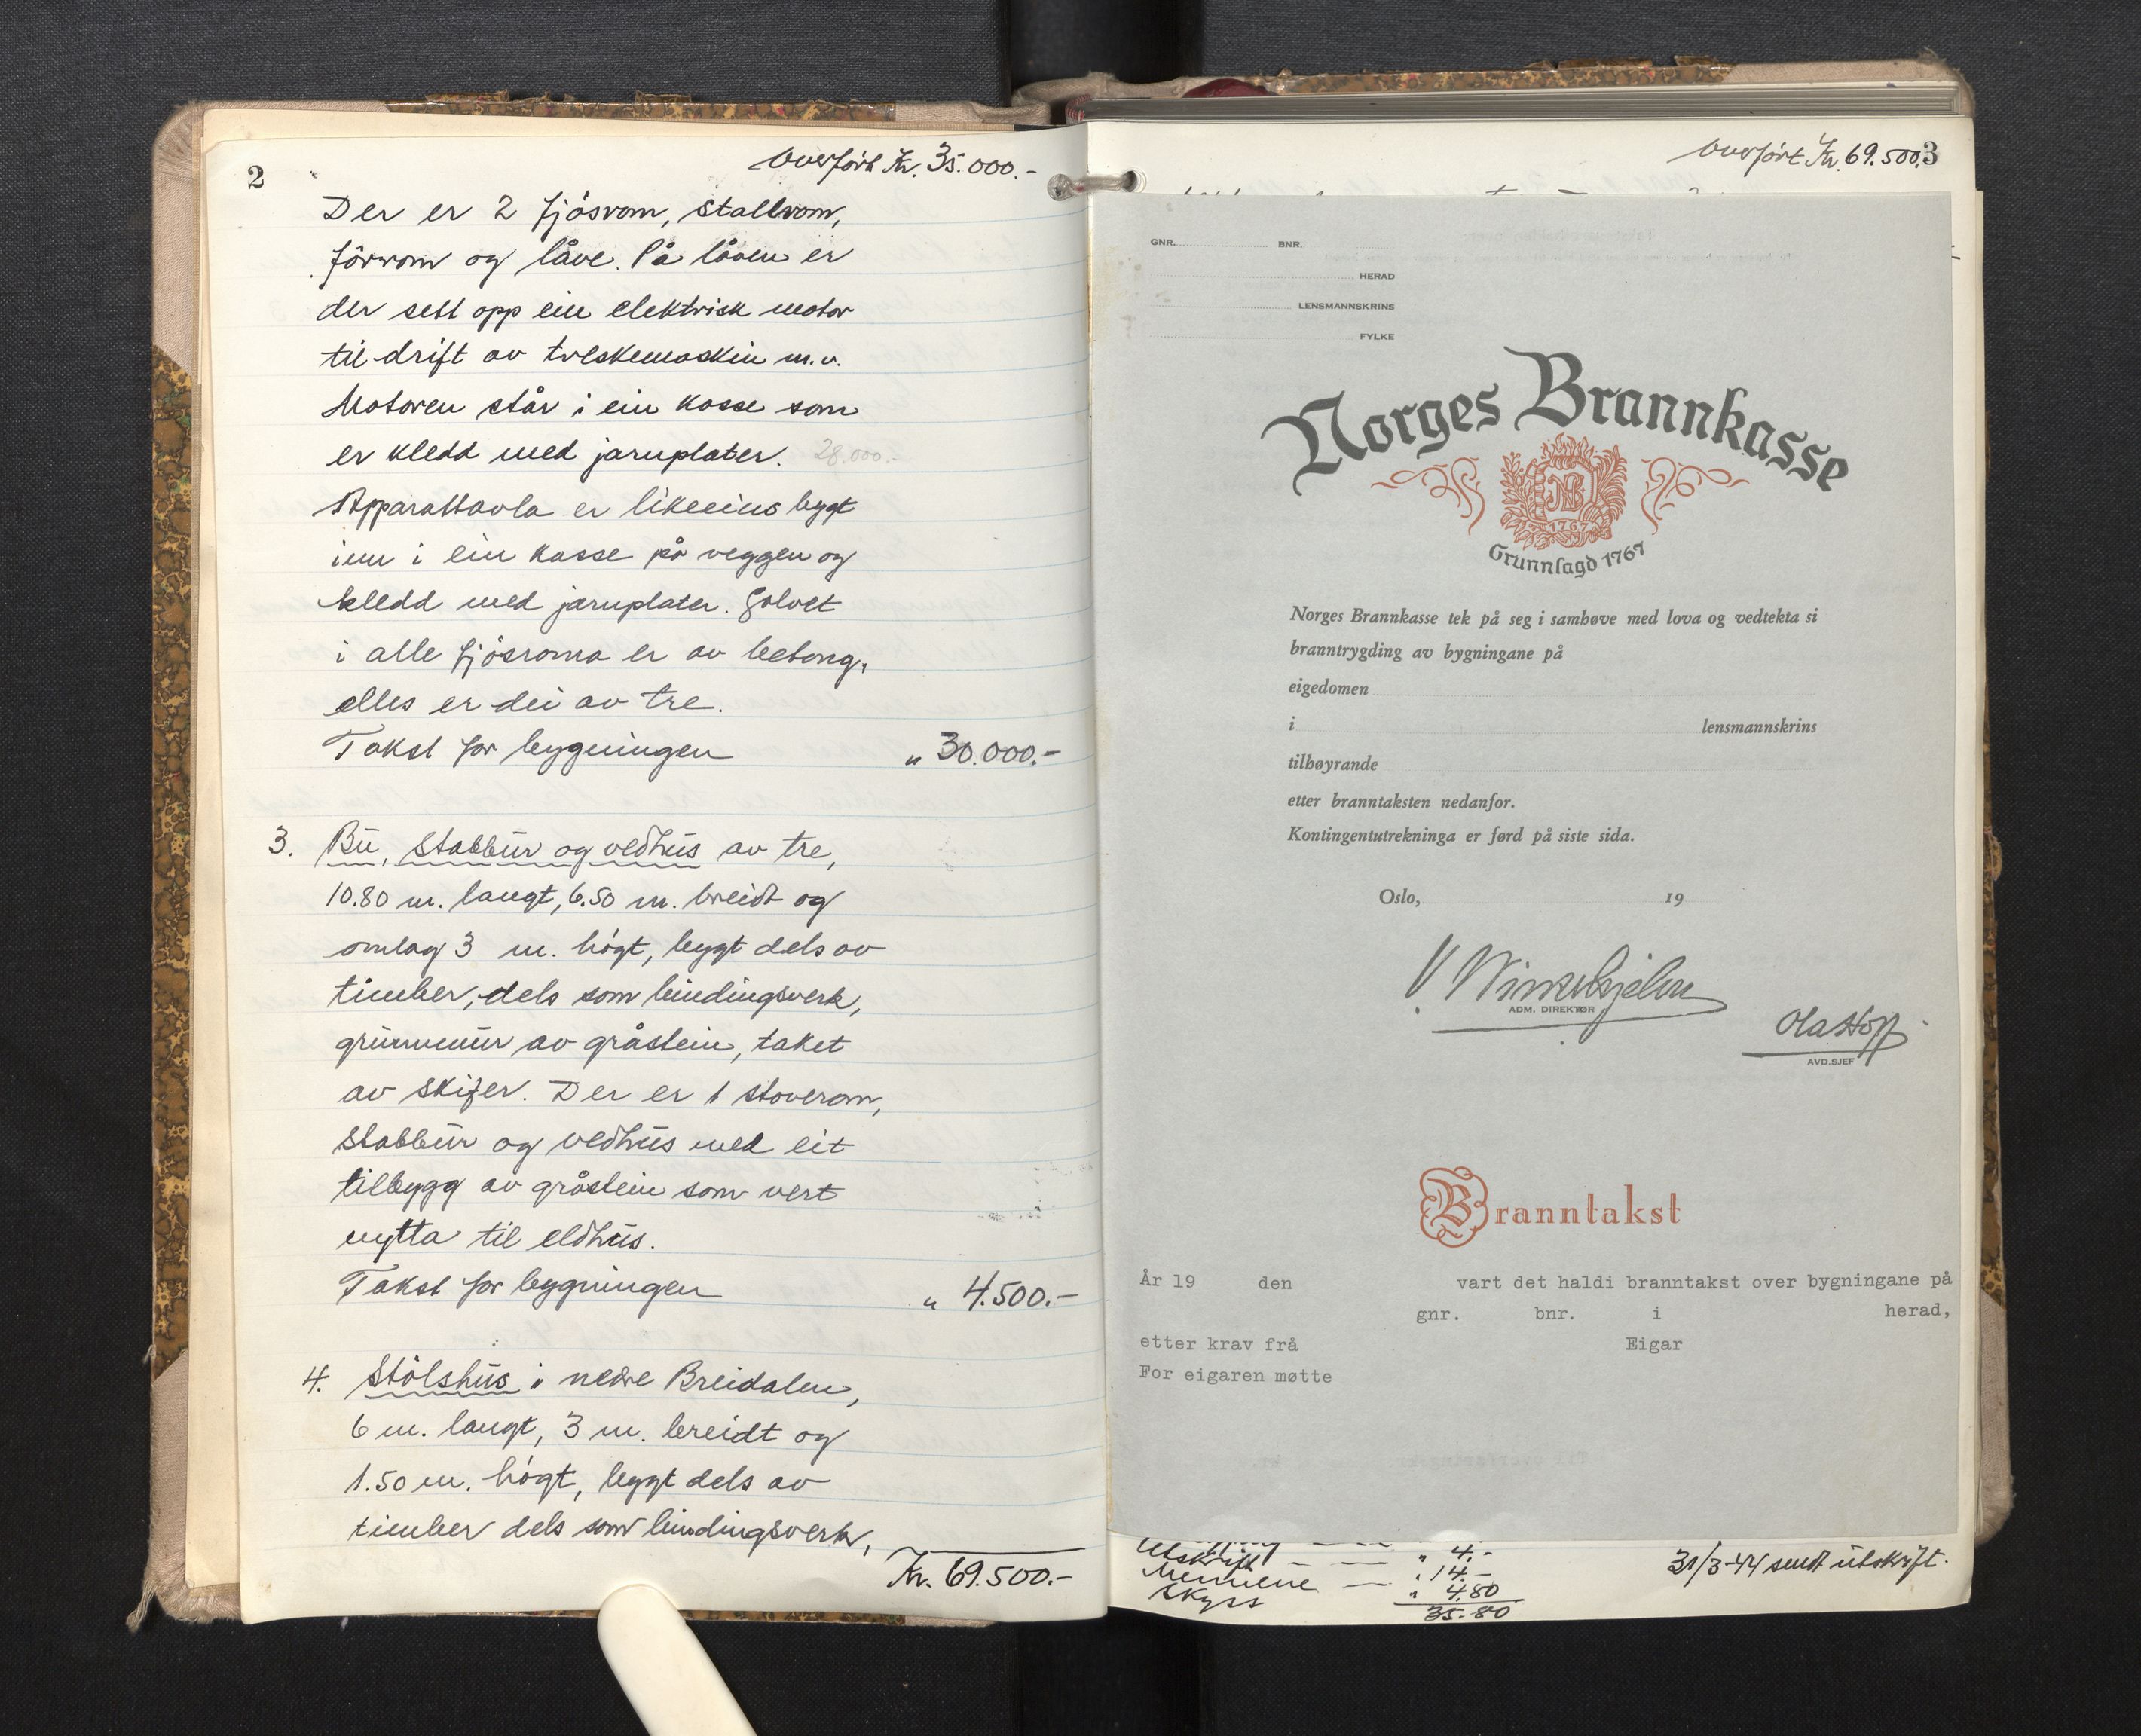 2
Overført Kr. 35.000.-
Der er 2 fjósrom, stallrom,
fôrrom og låve. På låven er
der sett opp ein elektrisk motor
til drift av treskemaskin m.v.
Motoren står i ein kasse som
er kledd med jarnplater. 28.000.-
Apparattavla er likeeins bygt
inn i ein kasse på veggen og
kledd med jarnplater. Golvet
i alle fjósroma er av betong,
elles er dei av tre.
Takst for bygningen " 30.000.-
3. Bu, Stabbur og vedhus av tre,
10.80 m. langt, 6.50 m. breidt og
omlag 3 m. högt, bygt dels av
timber, dels som bindingsverk,
grunnmur av gråstein, taket
av skifer. Der er 1 stoverom,
stabbur og vedhus med eit
tilbygg av gråstein som vert
nytta til eldhus.
Takst for bygningen " 4.500.-
4. Stölshus i nedre Breidalen,
6 m. langt, 3 m. breidt og
1.50 m. högt, bygt dels av
timber dels som bindingsverk,
Kr. 69.500.-
Overført Kr. 69.500.
3
GNR. BNR.
HERAD
LENSMANNSKRINS
FYLKE
Norges Brannkasse
NB
1767
Grunnlagd 1767
Norges Brannkasse tek på seg i samhøve med lova og vedtekta si
branntrygding av bygningane på
eigedomen
i lensmannskrins
tilhøyrande
etter branntaksten nedanfor.
Kontingentutrekninga er førd på siste sida.
Oslo, 19
ADM. DIREKTØR
Ola Hoff
AVD.SJEF
Branntakst
År 19 den vart det haldi branntakst over bygningane på
gnr. bnr. i herad,
etter krav frå Eigar
For eigaren møtte
" 4.-
Utskrift — — " 14.-
Mennene —
Skyss " 4.80
35.80
31/3-44 sendt utskrift.